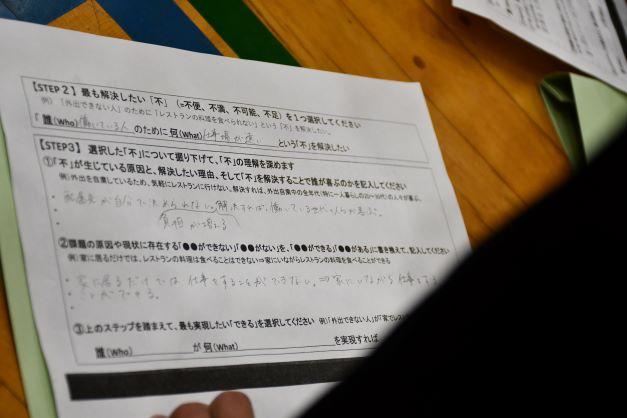 【STEP2】最も解決したい「不」（=不便、不満、不可能、不足）を１つ選択してください
例）「外出できない人」のために「レストランの料理を食べられない」という「不」を解決したい。
「誰(Who) 働いている人 のために何(What) 仕事場が遠い という「不」を解決したい
【STEP3】選択した「不」について掘り下げて、「不」の理解を深めます
①「不」が生じている原因と、解決したい理由、そして「不」を解決することで誰が喜ぶのかを記入してください
例）外出を自粛しているため、気軽にレストランに行けない。解決すれば、外出自粛中の全年代（特に一人暮らしの20～30代）の人々が喜ぶ。
・ が自分で決められない。解決すれば、働いている世代の人が喜ぶ。
負担が増える
②課題の原因や現状に存在する「●●ができない」「●●がない」を、「●●ができる」「●●がある」に書き換えて、記入してください
例）家に居るだけでは、レストランの料理は食べることはできない⇒家にいながらレストランの料理を食べることができる
・家に居るだけでは 仕事をすることができない。⇒家にいながら仕事をする
・ことができる。
③上のステップを踏まえて、最も実現したい「できる」を選択してください 例）「外出できない人」が「家でレス
誰(Who) が 何(What) を実現すれば